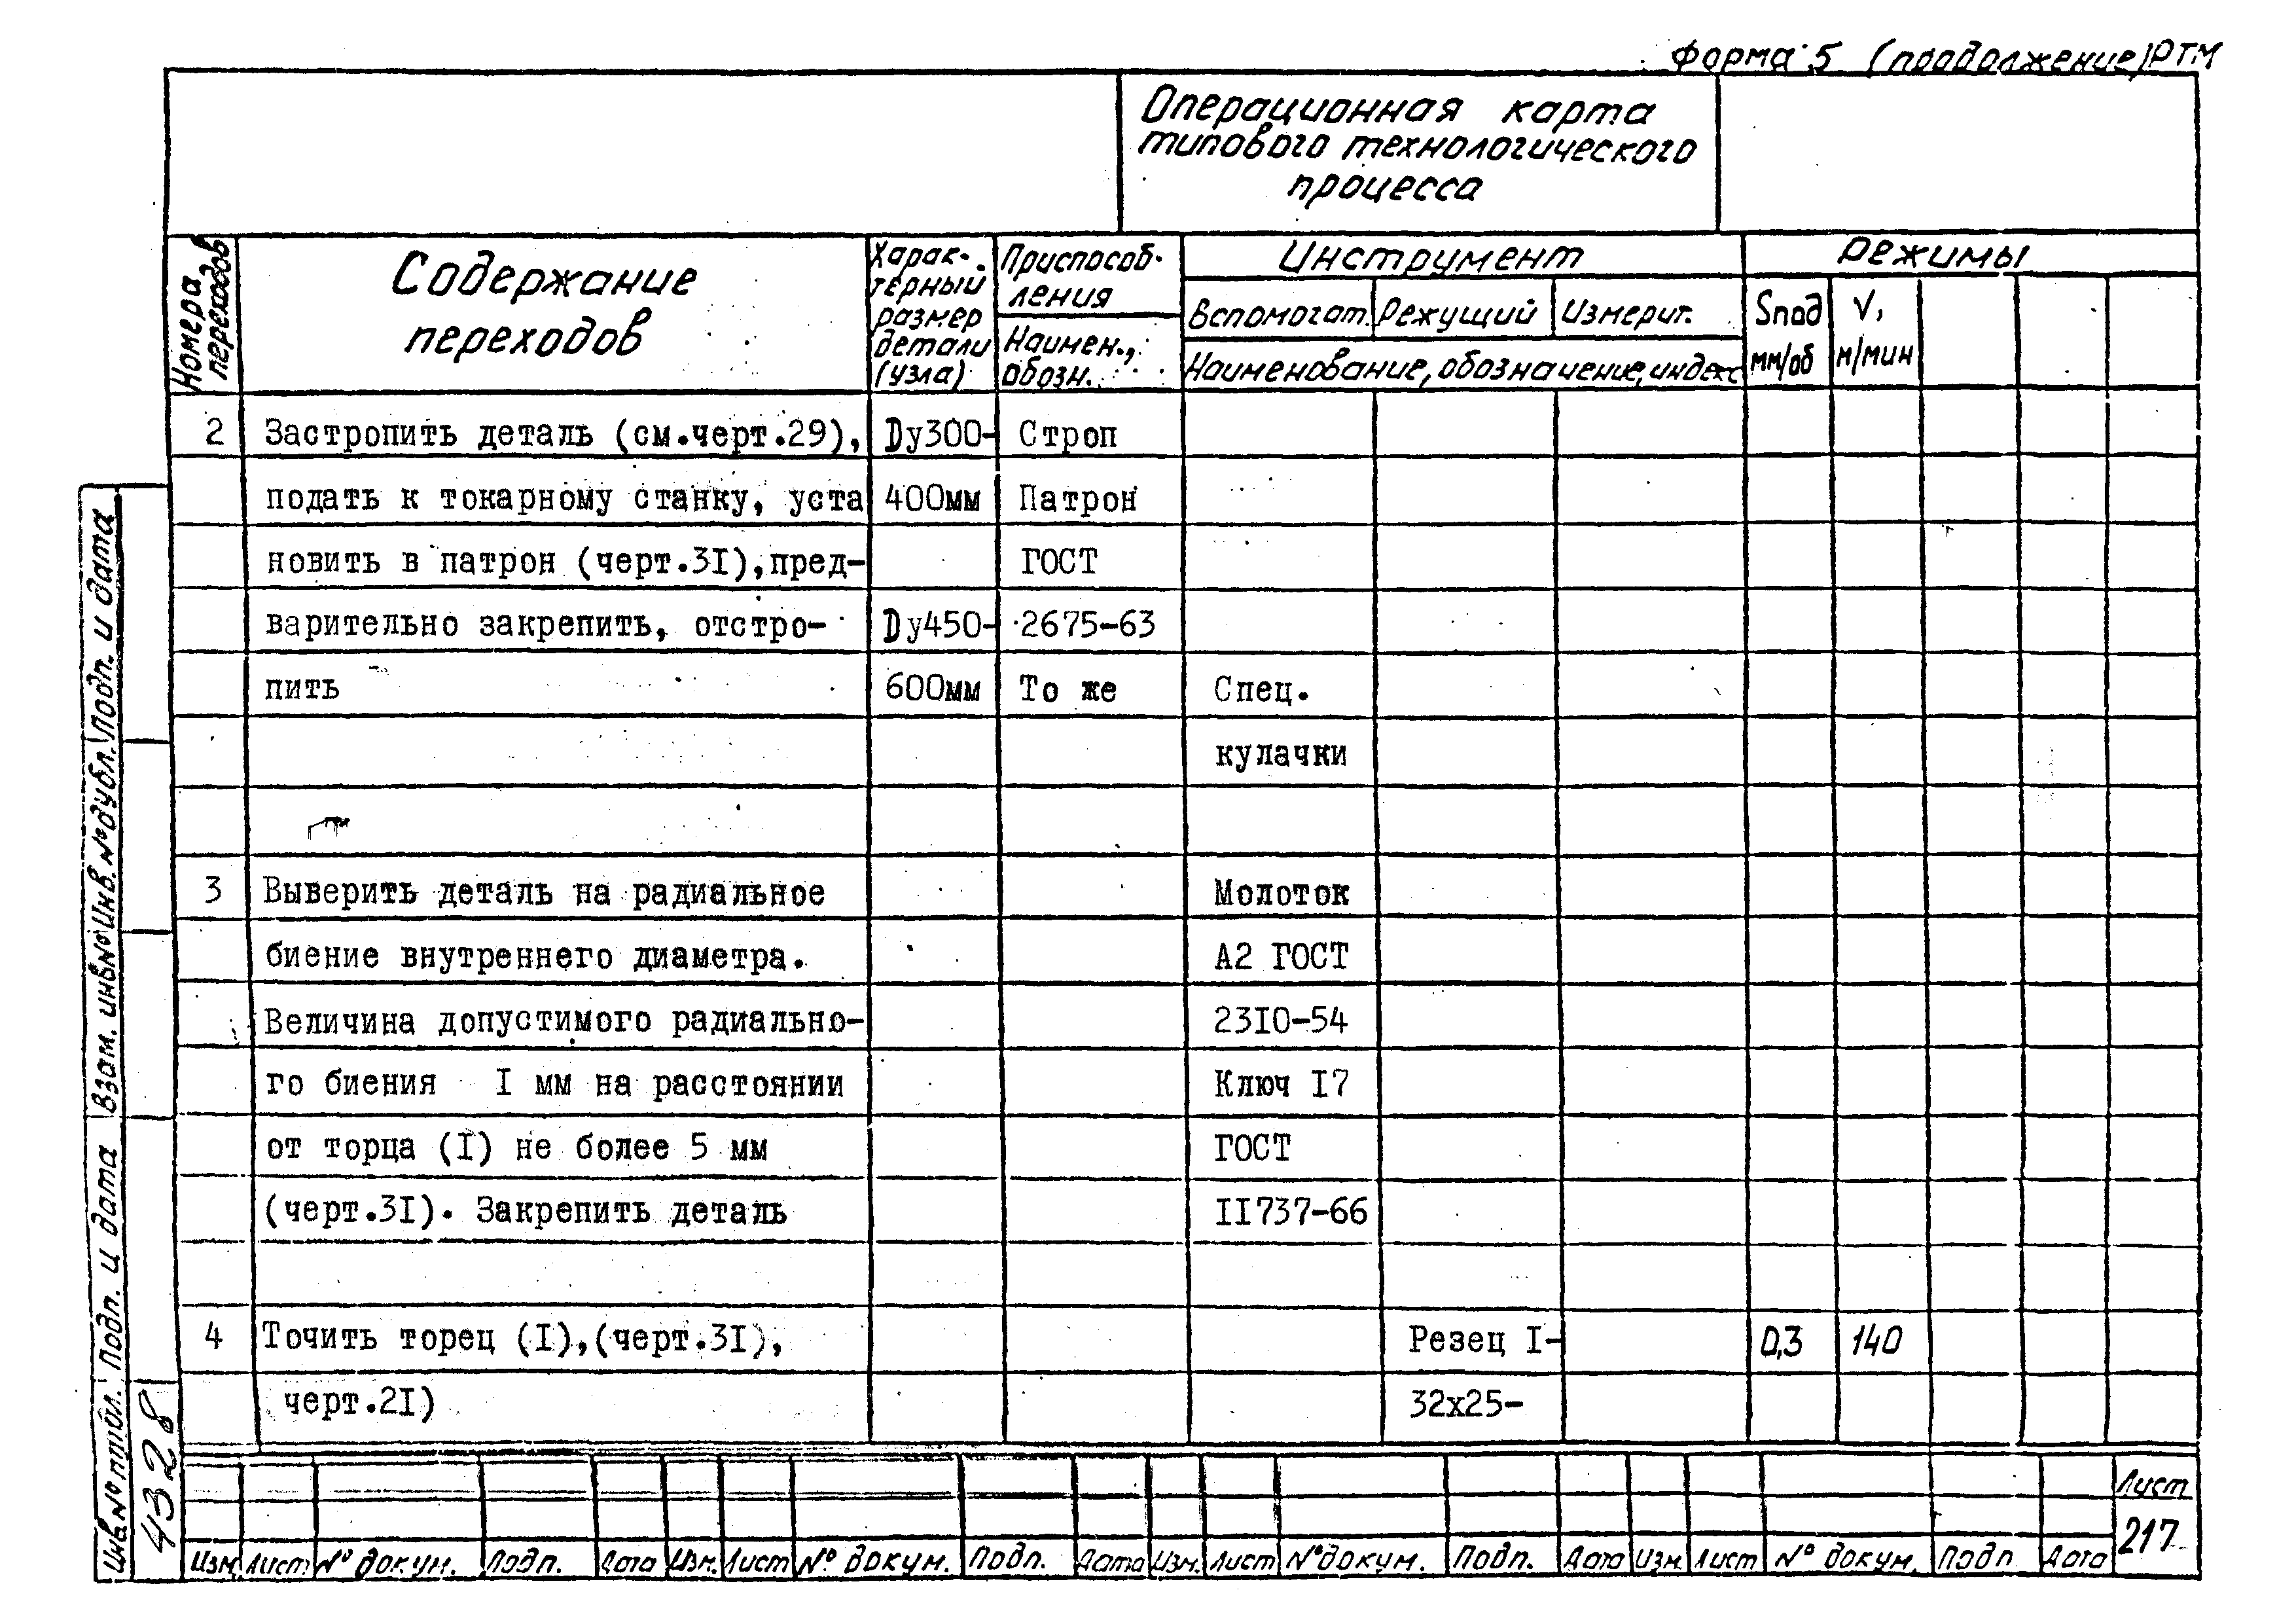 Форма 5 (продолжение) РТМ
Операционная карта
типового технологического
процесса
Номера переходов
Содержание
переходов
Харак-
терный
размер
детали
(узла)
Приспособ-
ления
Наимен.,
обозн.
Инструмент
Вспомогат. Режущий Измерит.
Наименование, обозначение, индекс
Режимы
Sпод
мм/об
V,
м/мин
2 Застропить деталь (см.черт.29), Dу300- Строп
подать к токарному станку, уста 400мм Патрон
новить в патрон (черт.3I),пред- ГОСТ
варительно закрепить, отстро- Dу450- 2675-63
пить 600мм То же Спец.
кулачки
3 Выверить деталь на радиальное Молоток
биение внутреннего диаметра. А2 ГОСТ
Величина допустимого радиально- 23I0-54
го биения I мм на расстоянии Ключ I7
от торца (I) не более 5 мм ГОСТ
(черт.3I). Закрепить деталь II737-66
4 Точить торец (I),(черт.3I), Резец I- 0,3 140
черт.2I) 32х25-
Инв.№ подл. Подп. и дата Взам. инв.№ Инв.№ дубл. Подп. и дата
4328
Изм Лист № докум. Подп. Дата Изм. Лист № докум. Подп. Дата Изм. Лист № докум. Подп. Дата Изм Лист № докум. Подп Дата
Лист
217